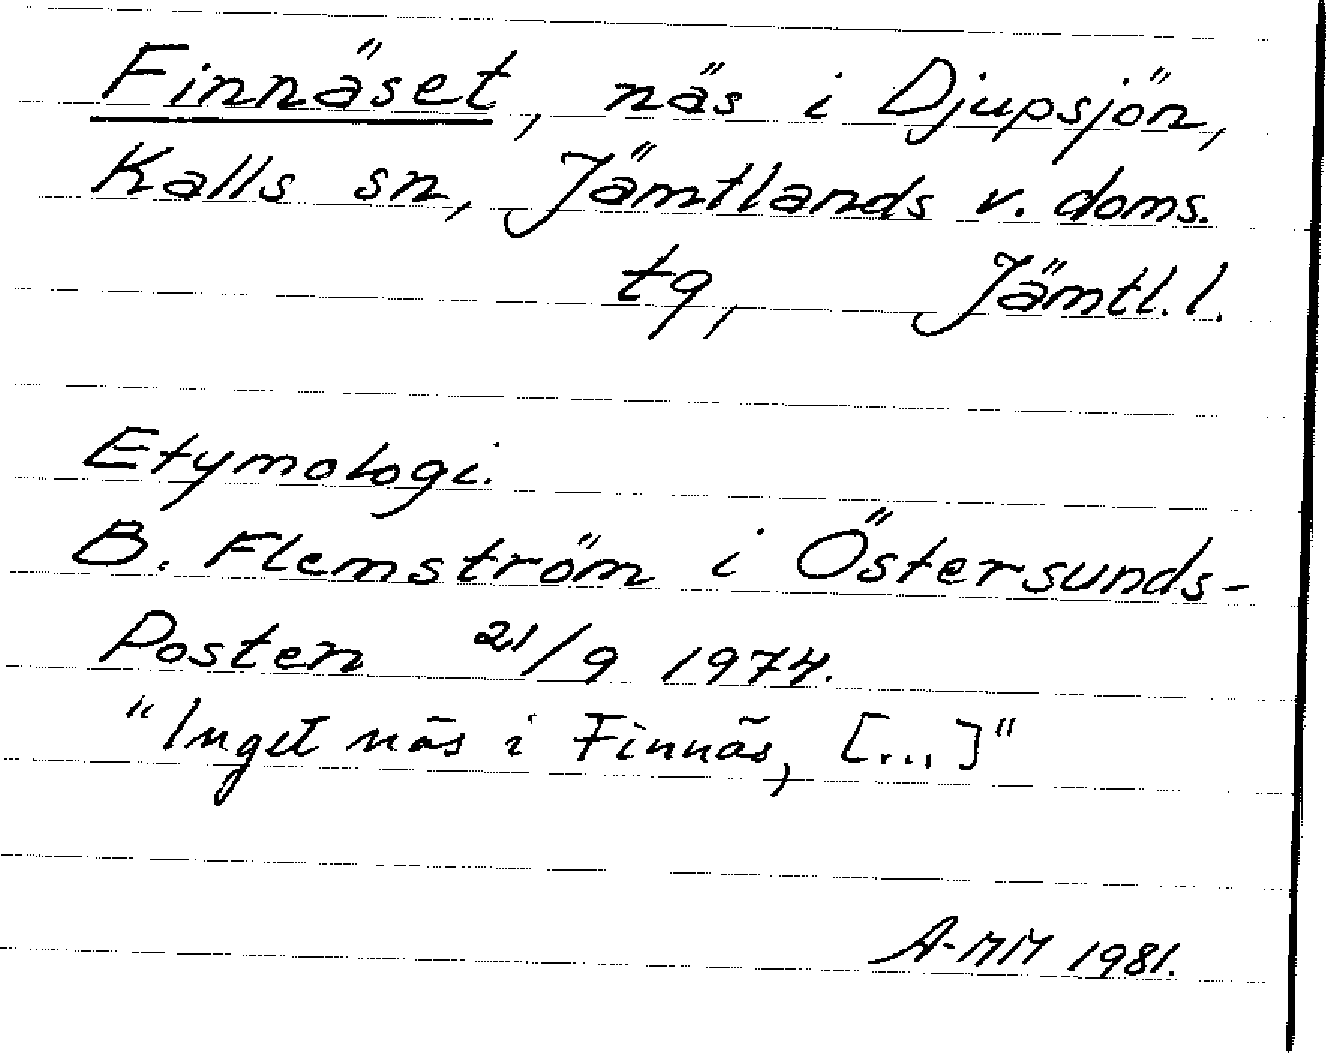 Finnäset, näs i Djupsjön,
Kalls sn, Jämtlands v. doms.
tg, Jämtl. l.
Etymologi.
B. Flemström i Östersunds-
Posten 21/9 1974.
"Inget näs i Finnäs, [...]"
A-MM 1981.